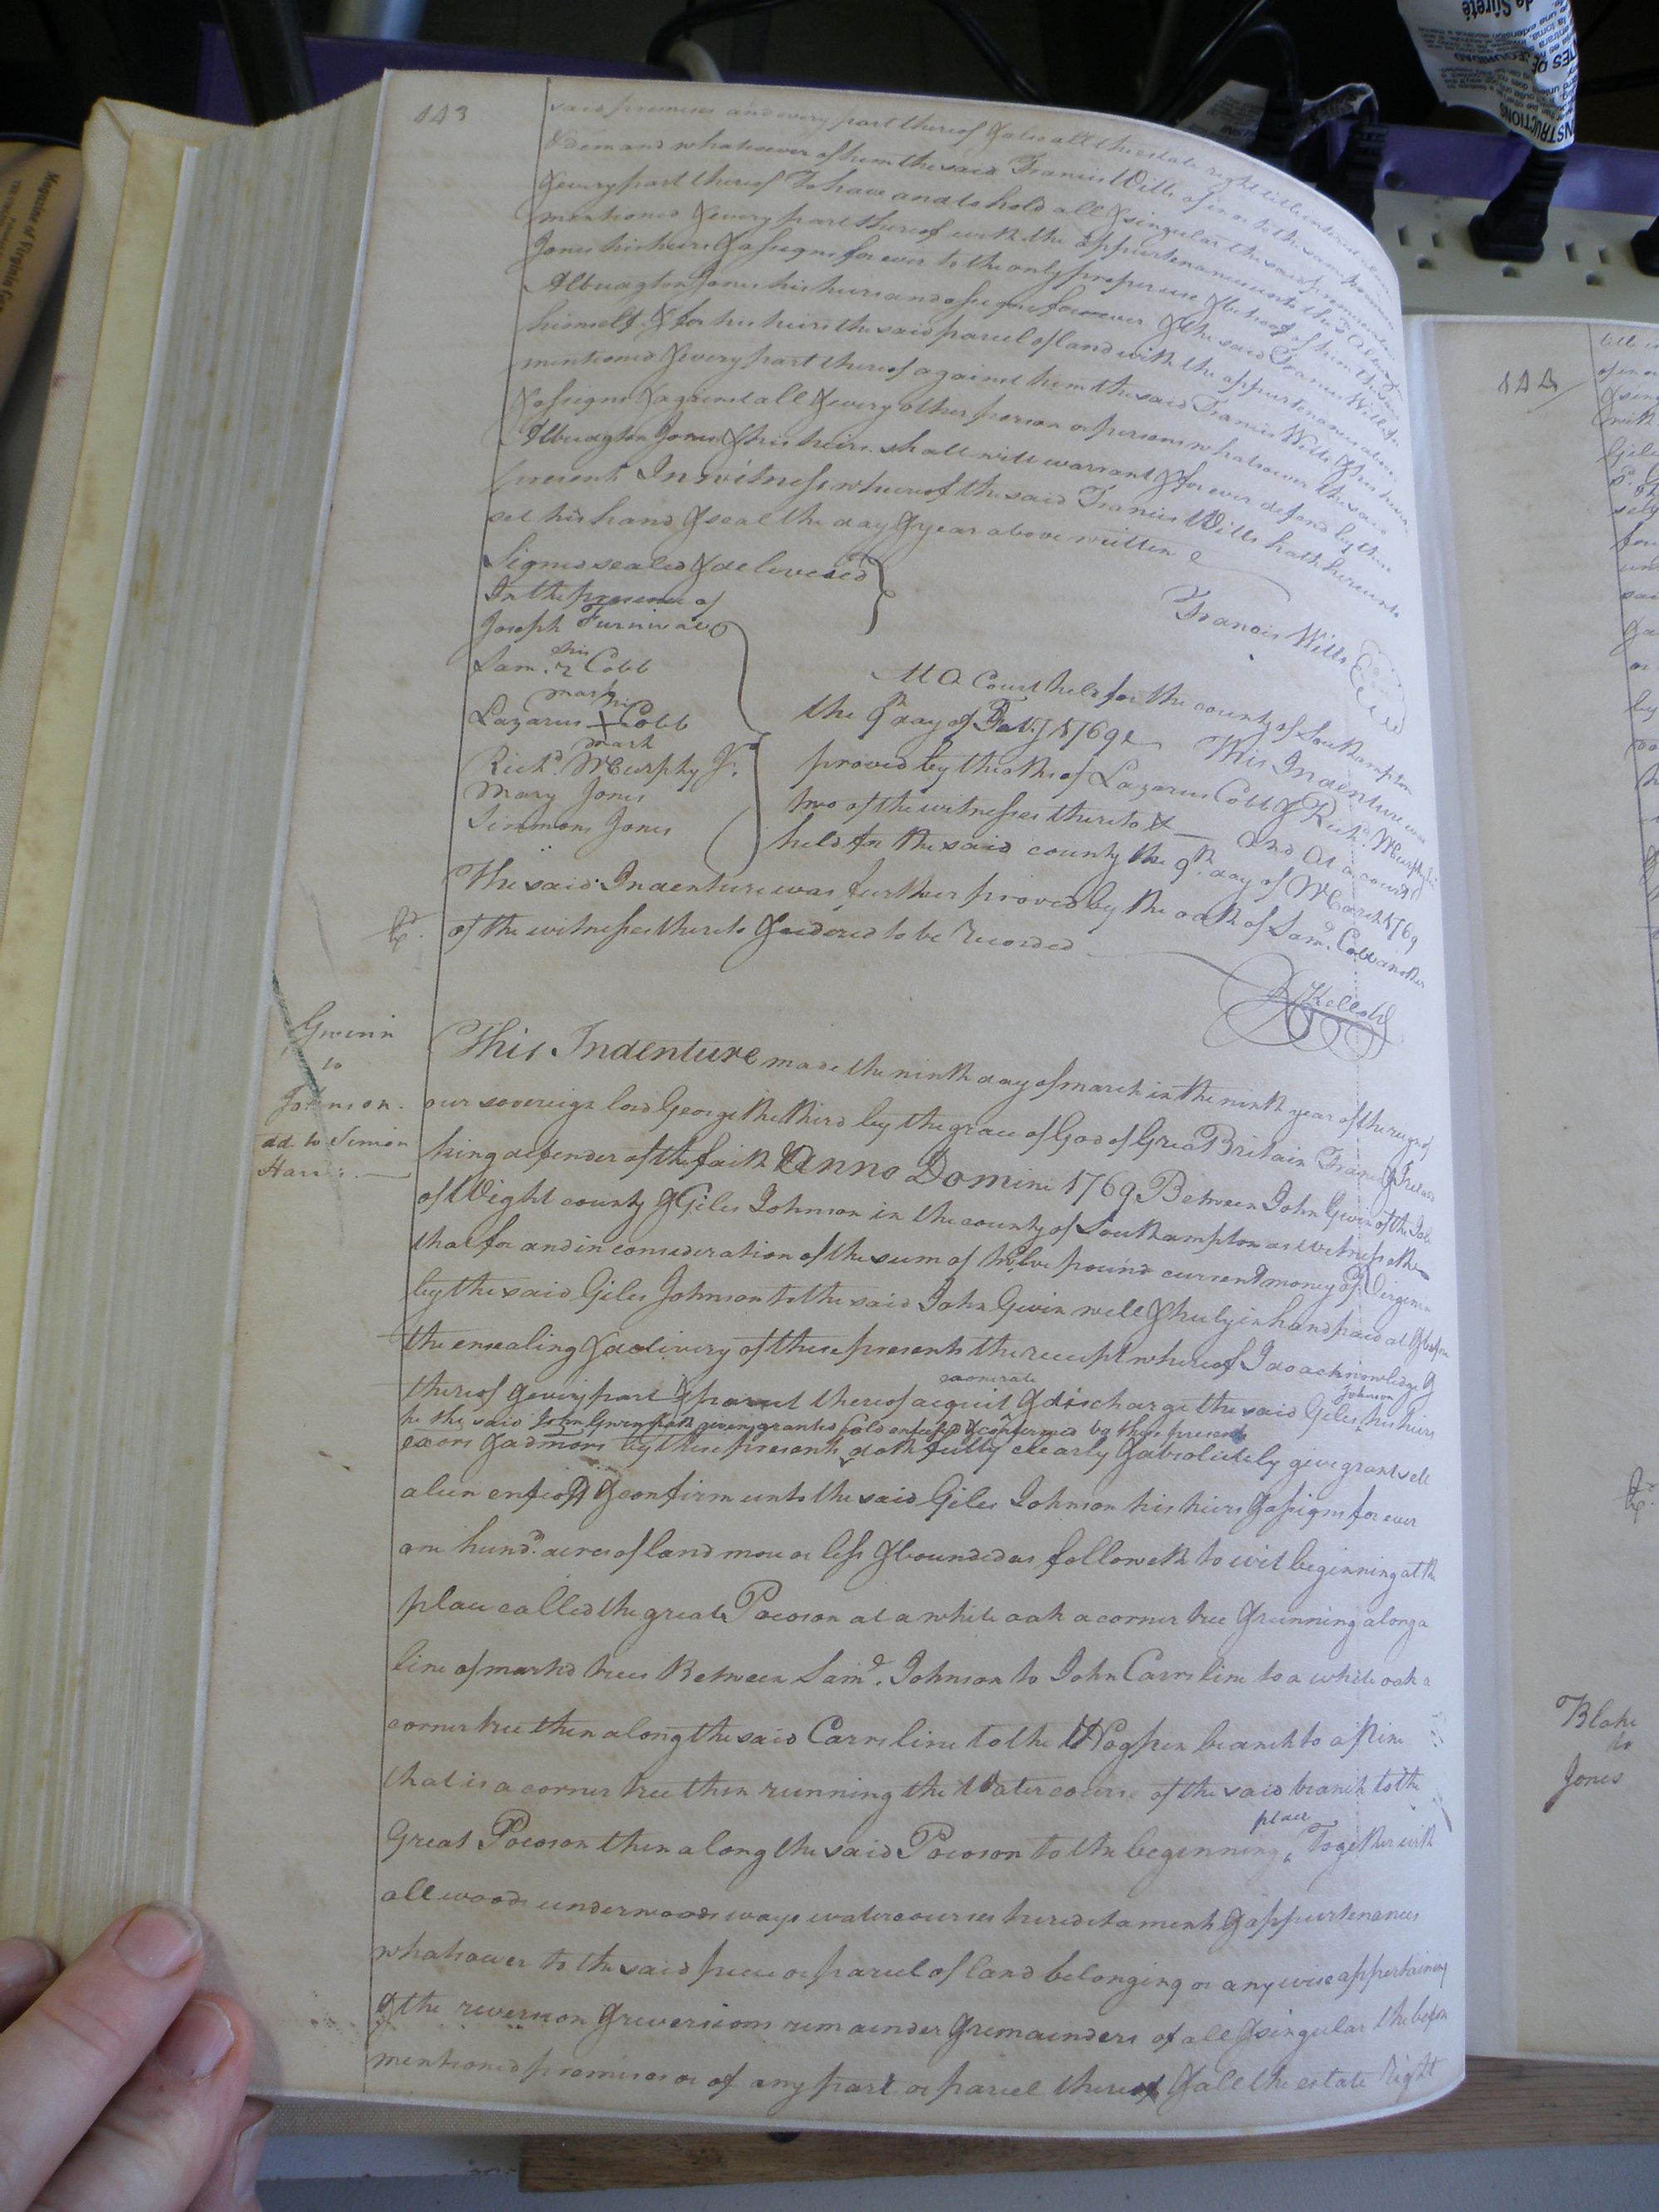 443
said premises and every part thereof & also all the estate right title interest
& demand whatsoever of him the said Francis Wills of in or to the same
& every part thereof To have and to hold all & singular the said premises
mentioned & every part thereof with the appurtenances unto the sd Albridgton
Jones his heirs & assigns for ever to the only proper use & behoof of him the said
Albridgton Jones his heirs and assigns forever & the said Francis Wills for
himself & for his heirs the said parcel of land with the appurtenances above
mentioned & every part thereof against him the said Francis Wills & his heirs
& assigns & against all & every other person or persons whatsoever the said
Albridgton Jones & his heirs shall will warrant & for ever defend by these
presents In witness whereof the said Francis Wills hath hereunto
set his hand & seal the day & year above written
Signed sealed & delivered
In the presence of
Francis Wills
Joseph Furnival
Sam. his Cobb
mark
Lazarus his X Cobb
mark
Richd. Murphy Jr.
Mary Jones
Simmons Jones
At a Court held for the county of Southampton
the 9th day of Feby 1769 This Indenture was
proved by the oths of Lazarus Cobb & Richd. Murphy
two of the witnesses thereto & And At a court
held for the said county the 9th. day of March 1769
The said Indenture was further proved by the oath of Samd. Cobb another
of the witnesses thereto & ordered to be recorded
Kello
Gwinn
to
Johnson.
dd. to Simon
Harris.
This Indenture made the ninth day of march in the ninth year of the reign of
our sovereign lord George the third by the grace of God of Great Britain France & Ireland
king defender of the faith & Anno Domini 1769 Between John Gwin of the Isle
of Wight county & Giles Johnson in the county of Southampton as witnesseth
that for and in consideration of the sum of twelve pound current money of Virginia
by the said Giles Johnson to the said John Gwin well & truly in hand paid at & before
the ensealing & delivery of these presents the receipt whereof I do acknowledge &
exonerate
Johnson
thereof & every part & parcel thereof acquit & discharge the said Giles his heirs
he the said John Gwin hath given granted sold enfeofd & confirmed by these presents
exors & admors by these presents doth fully clearly & absolutely give grant sell
alien enfeoff & confirm unto the said Giles Johnson his heirs & assigns for ever
one hund. acres of land more or less & bounded as followeth to wit beginning at the
place called the great Pocoson at a white oak a corner tree & running along a
line of markd trees Between Samd. Johnson to John Carrs line to a white oak a
corner tree then along the said Carrs line to the Hogpen branch to a Pine
that is a corner tree then running the Watercourse of the said branch to the
place
Great Pocoson then along the said Pocoson to the beginning Together with
all woods underwoods ways watercourses hereditaments & appurtenances
whatsoever to the said piece or parcel of land belonging or any wise appertaining
& the reversion & reversions remainder & remainders of all & singular the before
mentioned premises or of any part or parcel thereof & all the estate right
444
Blake
to
Jones
Magazine of Virginia
de Sûreté
INSTRUCTIONS